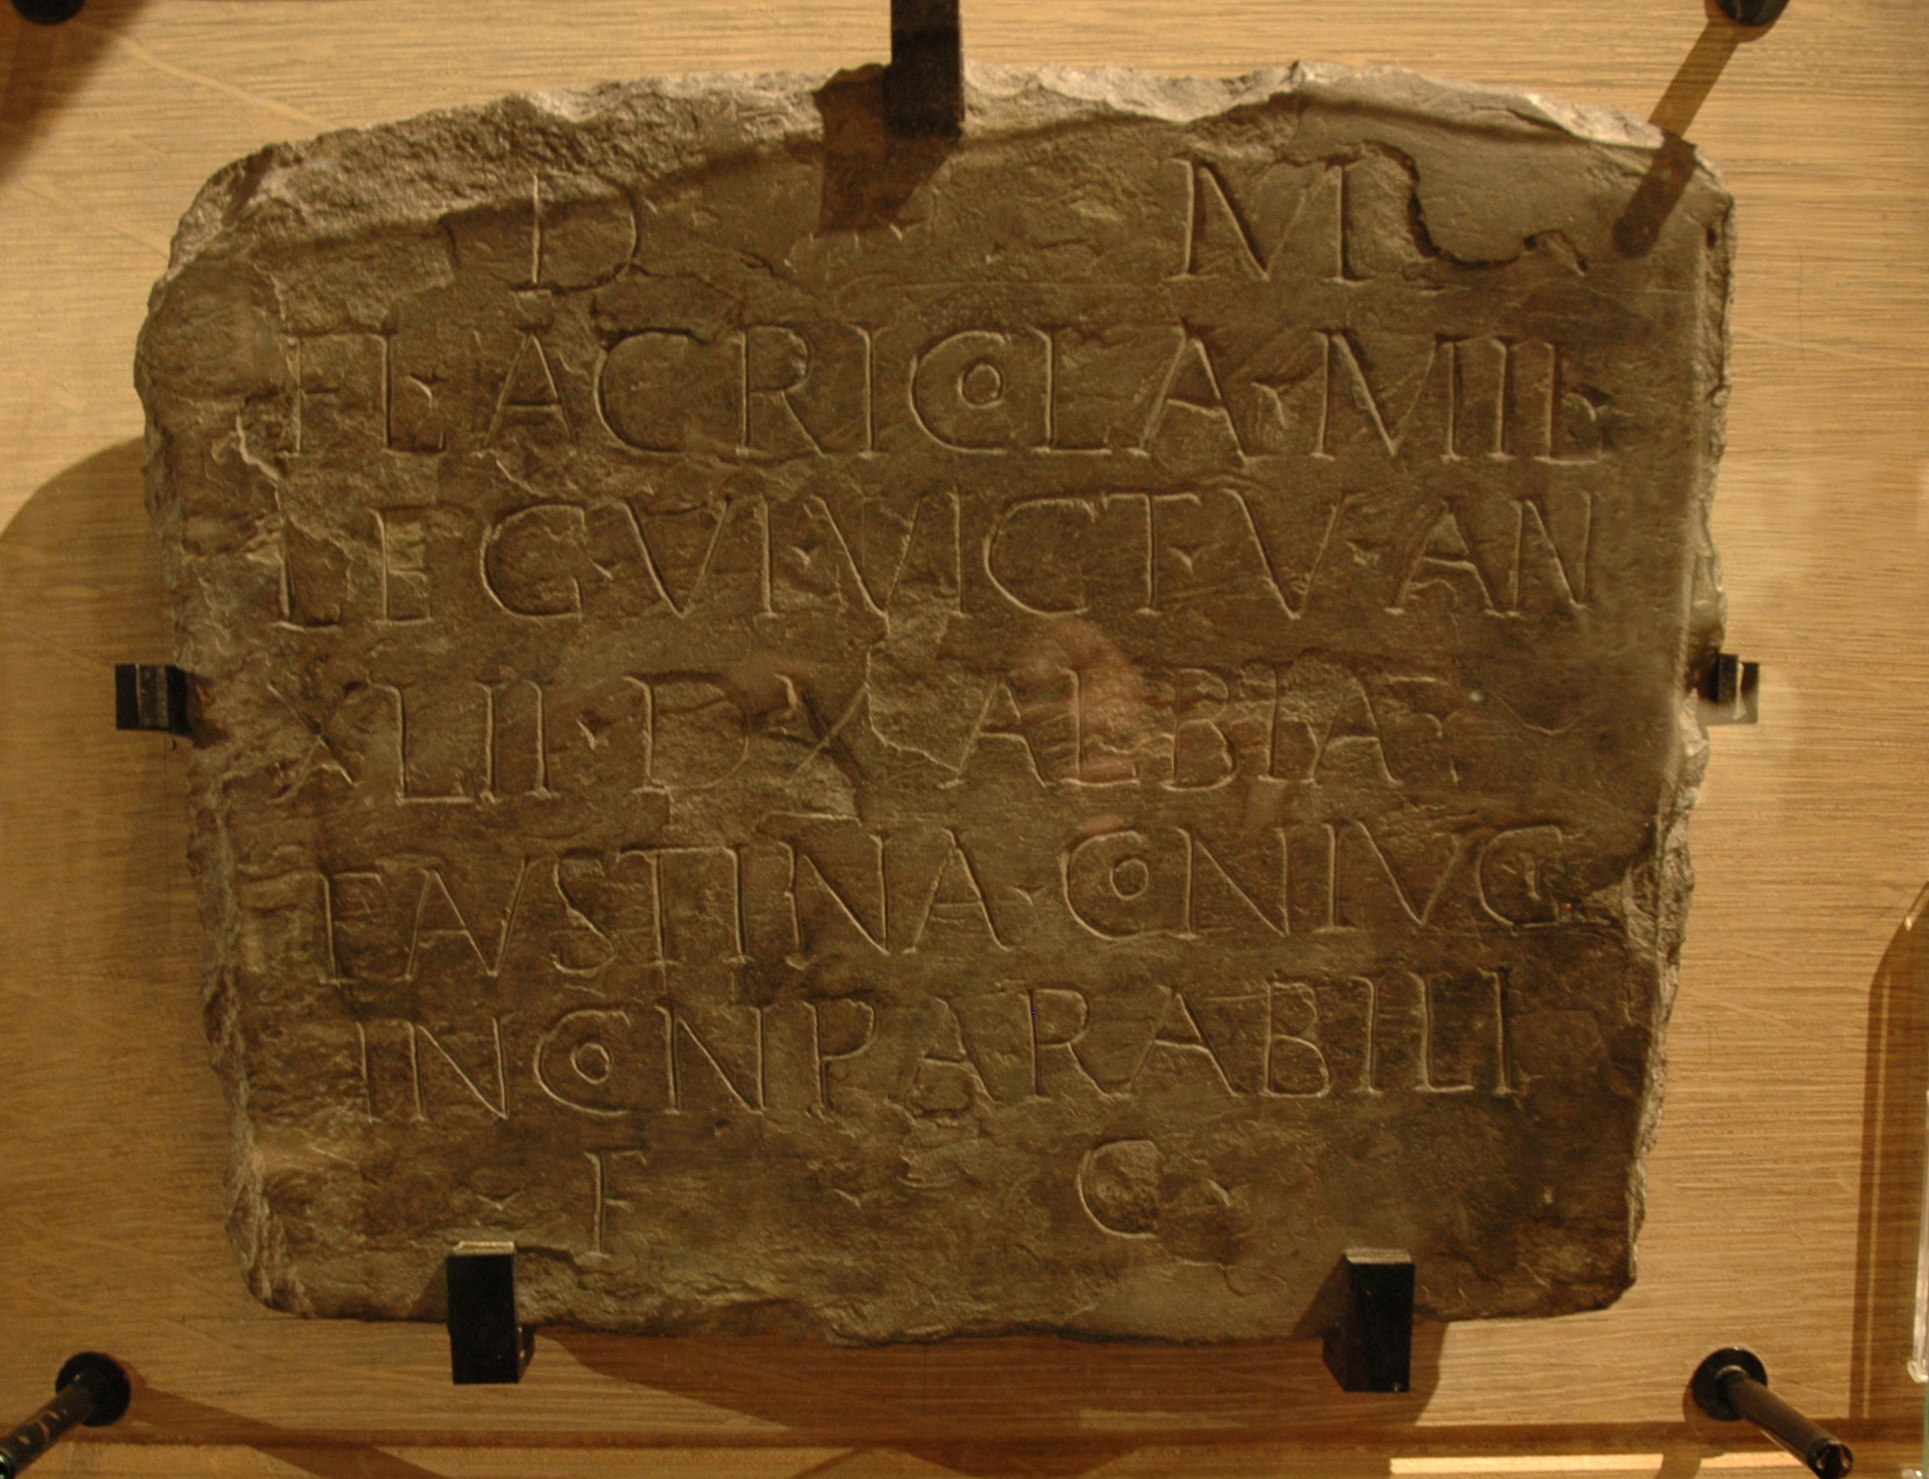 D M
FL·AGRICOLA·MIL·
LEG·VI·VICT·V·AN
XLII·D·X·ALBIA·
FAVSTINA·CONIVGI
INCONPARABILI
·F·C·